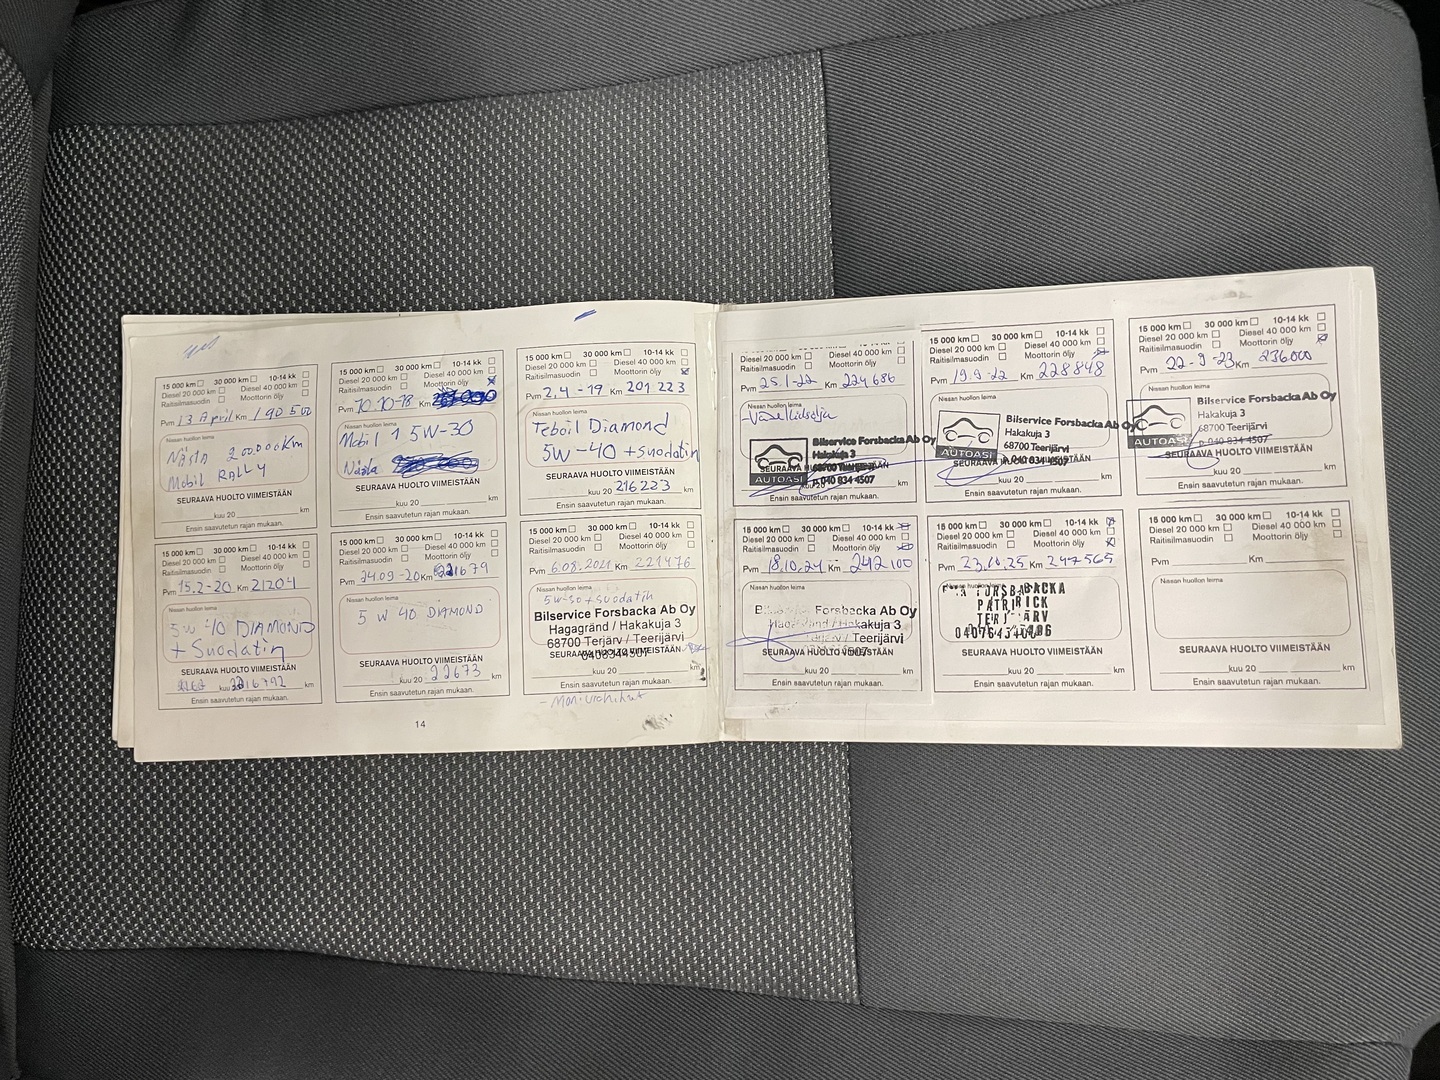 15 000 km 30 000 km 10-14 kk
Diesel 20 000 km Diesel 40 000 km
Raitisilmasuodin Moottorin öljy
Pvm 13 April Km 190 500
Nissan huollon leima
Nästa 200000km
Mobil RALLY
SEURAAVA HUOLTO VIIMEISTÄÄN
kuu 20 km
Ensin saavutetun rajan mukaan.
15 000 km 30 000 km 10-14 kk
Diesel 20 000 km Diesel 40 000 km
Raitisilmasuodin Moottorin öljy
Pvm 10-10-18 Km
Nissan huollon leima
Mobil 1 5W-30
Nästa
SEURAAVA HUOLTO VIIMEISTÄÄN
kuu 20 km
Ensin saavutetun rajan mukaan.
15 000 km 30 000 km 10-14 kk
Diesel 20 000 km Diesel 40 000 km
Raitisilmasuodin Moottorin öljy
Pvm 2.4-19 Km 201 223
Nissan huollon leima
Teboil Diamond
5W-40 + suodatin
SEURAAVA HUOLTO VIIMEISTÄÄN
kuu 20 216223 km
Ensin saavutetun rajan mukaan.
15 000 km 30 000 km 10-14 kk
Diesel 20 000 km Diesel 40 000 km
Raitisilmasuodin Moottorin öljy
Pvm 15.2-20 Km 21204
Nissan huollon leima
5W-40 DIAMOND
+ Suodatin
SEURAAVA HUOLTO VIIMEISTÄÄN
kuu km
Ensin saavutetun rajan mukaan.
15 000 km 30 000 km 10-14 kk
Diesel 20 000 km Diesel 40 000 km
Raitisilmasuodin Moottorin öljy
Pvm 24.09-20 Km
Nissan huollon leima
5 W 40 DIAMOND
SEURAAVA HUOLTO VIIMEISTÄÄN
kuu 20 22673 km
Ensin saavutetun rajan mukaan.
15 000 km 30 000 km 10-14 kk
Diesel 20 000 km Diesel 40 000 km
Raitisilmasuodin Moottorin öljy
Pvm 6.08.2021 Km 221476
Nissan huollon leima
5w-30 + suodatin
Bilservice Forsbacka Ab Oy
Hagagränd / Hakakuja 3
68700 Terjärv / Teerijärvi
0408344507
SEURAAVA HUOLTO VIIMEISTÄÄN
kuu 20 km
Ensin saavutetun rajan mukaan.
14
Diesel 20 000 km Diesel 40 000 km
Raitisilmasuodin Moottorin öljy
Pvm 25.1-22 Km 224 686
Nissan huollon leima
Bilservice Forsbacka Ab Oy
Hakakuja 3
68700 Teerijärvi
p. 040 834 4507
AUTOASI
SEURAAVA HUOLTO VIIMEISTÄÄN
kuu 20 km
Ensin saavutetun rajan mukaan.
15 000 km 30 000 km 10-14 kk
Diesel 20 000 km Diesel 40 000 km
Raitisilmasuodin Moottorin öljy
Pvm 19.9-22 Km 228848
Nissan huollon leima
Bilservice Forsbacka Ab Oy
Hakakuja 3
68700 Teerijärvi
p. 040 834 4507
AUTOASI
SEURAAVA HUOLTO VIIMEISTÄÄN
kuu 20 km
Ensin saavutetun rajan mukaan.
15 000 km 30 000 km 10-14 kk
Diesel 20 000 km Diesel 40 000 km
Raitisilmasuodin Moottorin öljy
Pvm 22-9-23 Km 236000
Nissan huollon leima
Bilservice Forsbacka Ab Oy
Hakakuja 3
68700 Teerijärvi
p. 040 834 4507
AUTOASI
SEURAAVA HUOLTO VIIMEISTÄÄN
kuu 20 km
Ensin saavutetun rajan mukaan.
15 000 km 30 000 km 10-14 kk
Diesel 20 000 km Diesel 40 000 km
Raitisilmasuodin Moottorin öljy
Pvm 18.10.24 Km 242 100
Nissan huollon leima
Forsbacka Ab Oy
Hakakuja 3
Teerijärvi
SEURAAVA HUOLTO VIIMEISTÄÄN
kuu 20 km
Ensin saavutetun rajan mukaan.
15 000 km 30 000 km 10-14 kk
Diesel 20 000 km Diesel 40 000 km
Raitisilmasuodin Moottorin öljy
Pvm 23.10.25 Km 247565
FORSBACKA
PATRICK
TERJÄRV
SEURAAVA HUOLTO VIIMEISTÄÄN
kuu 20 km
Ensin saavutetun rajan mukaan.
15 000 km 30 000 km 10-14 kk
Diesel 20 000 km Diesel 40 000 km
Raitisilmasuodin Moottorin öljy
Pvm Km
Nissan huollon leima
SEURAAVA HUOLTO VIIMEISTÄÄN
kuu 20 km
Ensin saavutetun rajan mukaan.